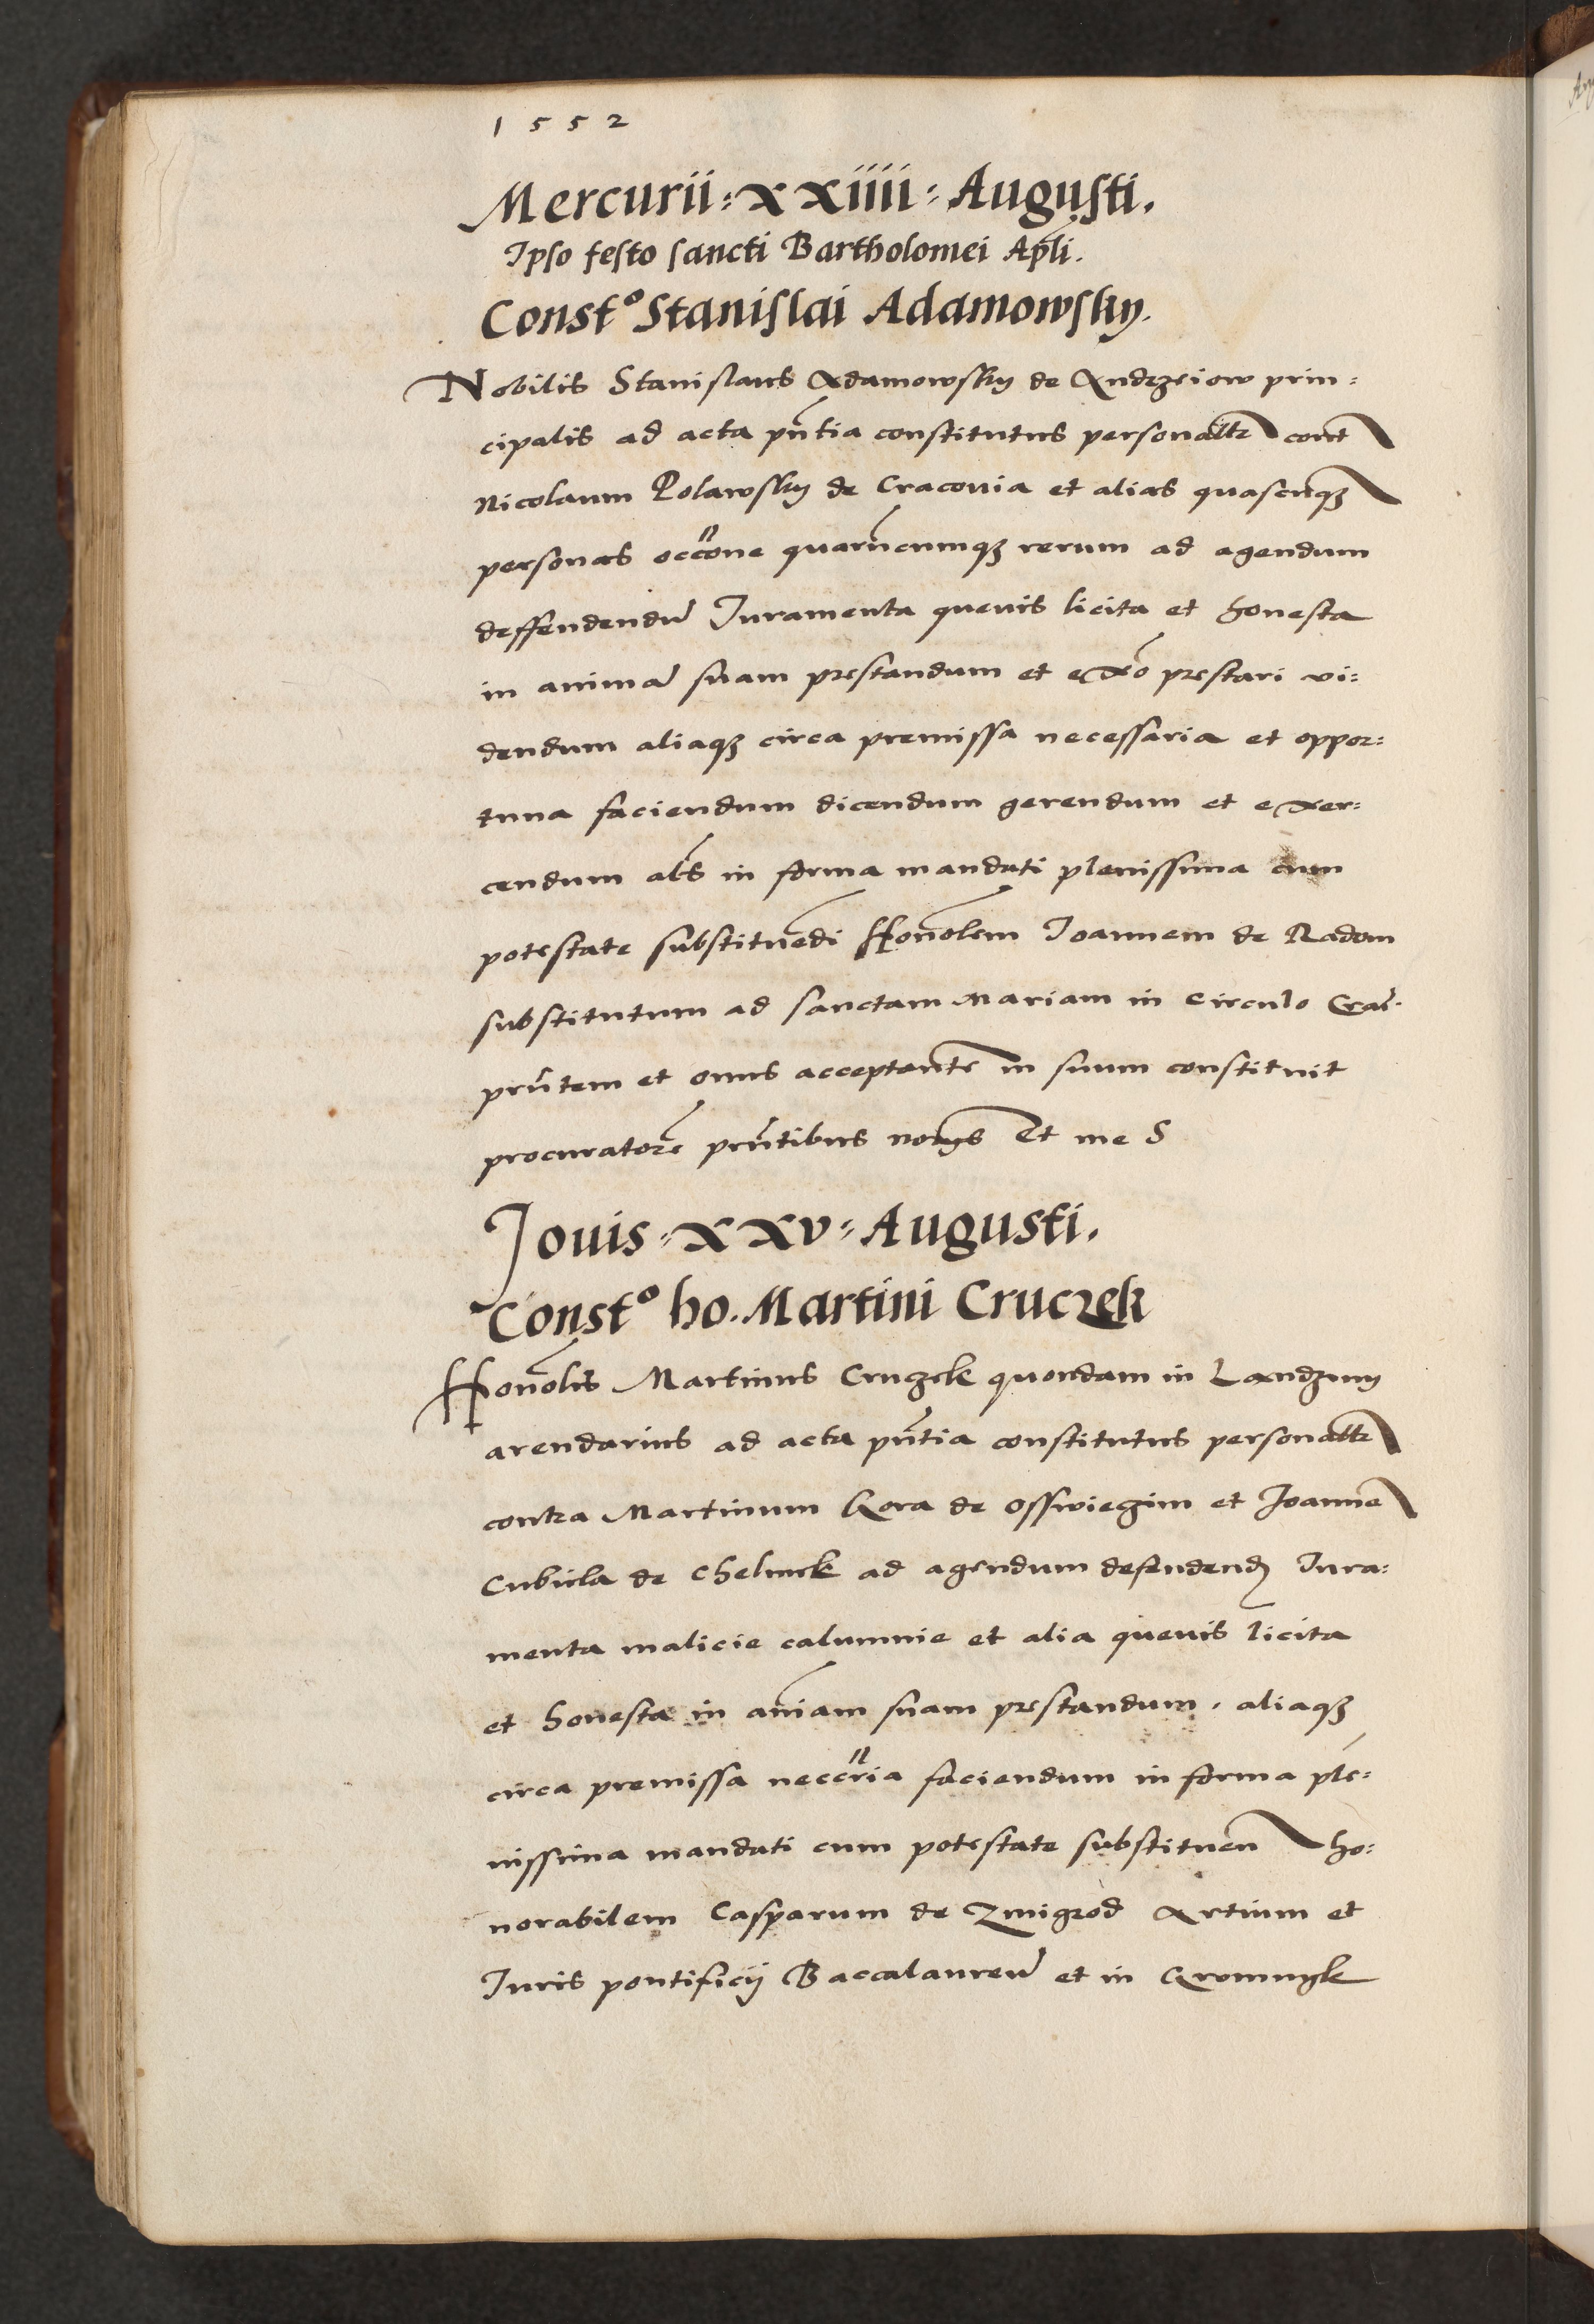 1552
Mercurii · XXIIII · Augusti.
Ipso festo sancti Bartholomei Apłi.
Constº Stanislai Adamowsky.
Nobilis Stanislaus Adamowsky de Andrzeiow prin:
cipalis ad acta pn̄tia constitutus personalr cont
Nicolaum Polawsky de Cracouia et alias quascūqꝫ
personas occōne quarūcumqꝫ rerum ad agendum
deffendendū Iuramenta queuis licita et honesta
in animā suam prestandum et ex aō prestari vi:
dendum aliaqꝫ circa premissa necessaria et oppor:
tuna faciendum dicendum gerendum et exer:
cendum als in forma mandati plenissima cum
potestate substituēdi Honōlem Ioannem de Radom
substitutum ad sanctam Mariam in Circulo Crac̄.
pn̄tem et onus acceptantē in suum constituit
procuratorē pn̄tibus Et me S
Jouis · XXV · Augusti.
Constº ho. Martini Cruczek
Honōlis Martinus Cruczek quondam in Landzuny
arendarius ad acta pn̄tia constitutus personalr
contra Martinum Kora de Osswieczim et Joannē
Cubicla de Chelmek ad agendum defendend Iura:
menta malicie calumnie et alia queuis licita
et honesta in aniam suam prestandum. aliaqꝫ
circa premissa neccria faciendum in forma ple:
nissima mandati cum potestate substituen ho:
norabilem Casparum de Zmigrod Artium et
Iuris pontificij Baccalaureū et in